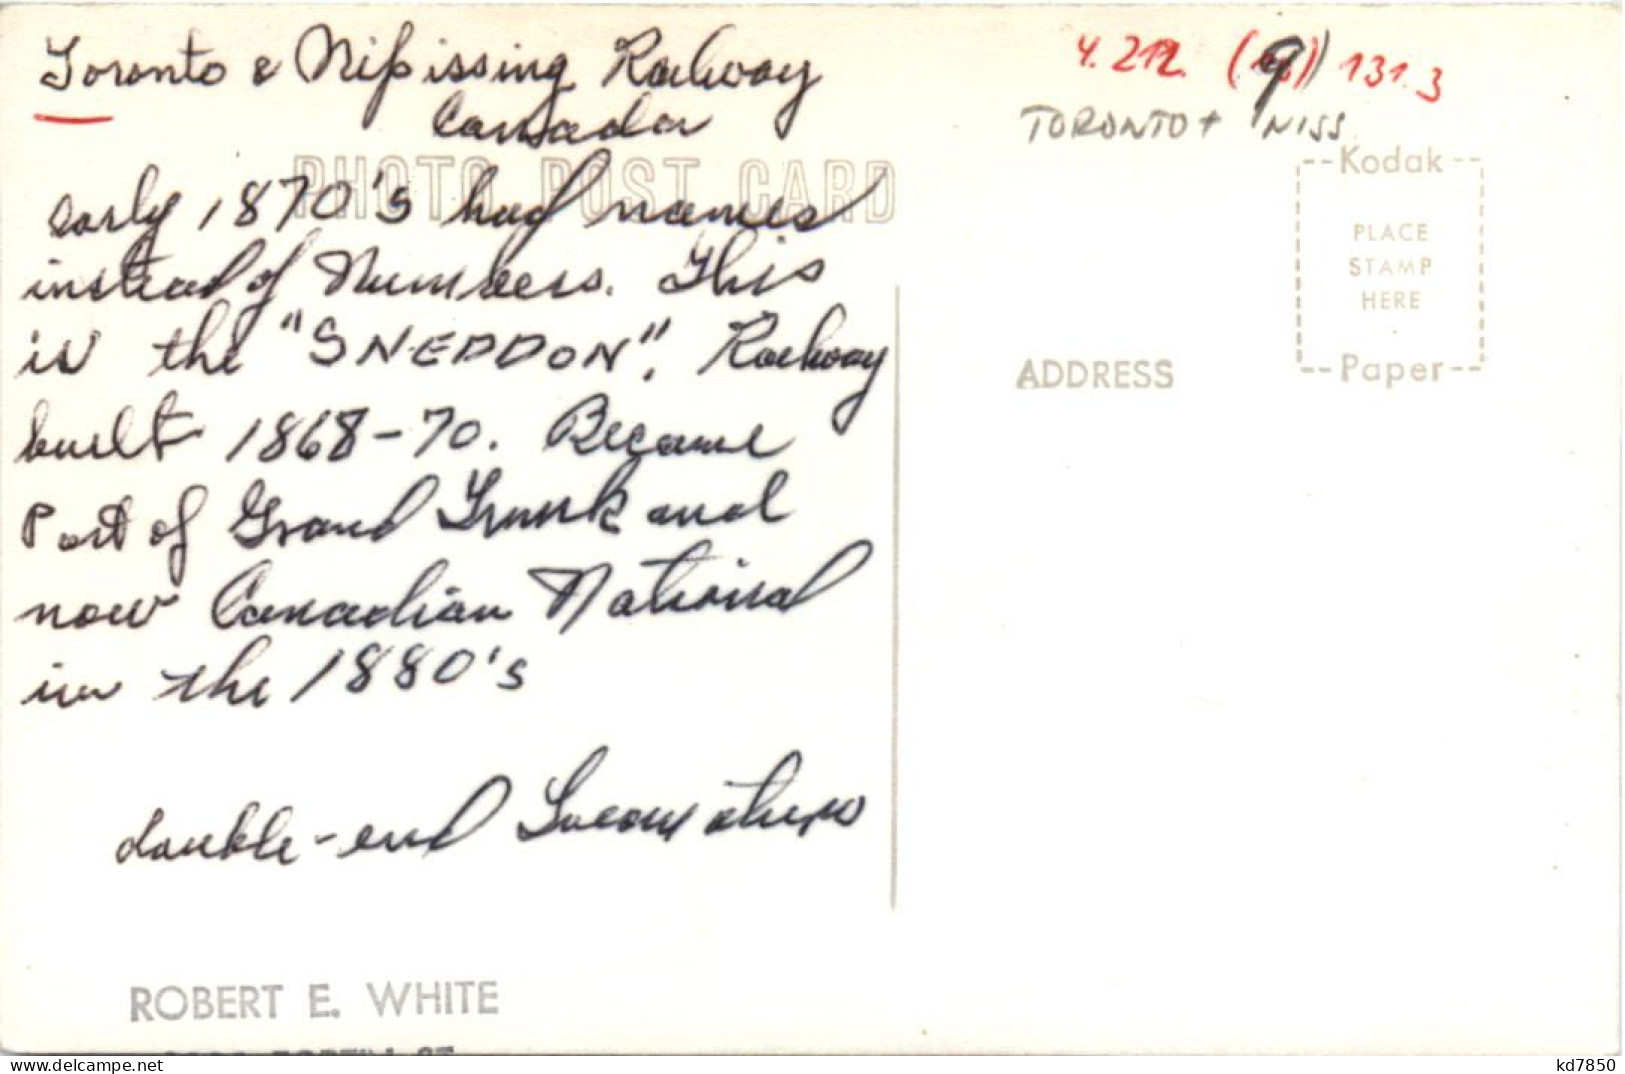 Toronto & Nipissing Railway
Canada
PHOTO POST CARD
early 1870's had names
instead of Numbers. This
is the "SNEDDON". Railway
built 1868-70. Became
Part of Grand Trunk and
now Canadian National
in the 1880's
double-end Locomotives
ROBERT E. WHITE
4.212. (9) 131.3
TORONTO + NISS
Kodak
PLACE
STAMP
HERE
Paper
ADDRESS
kd7850